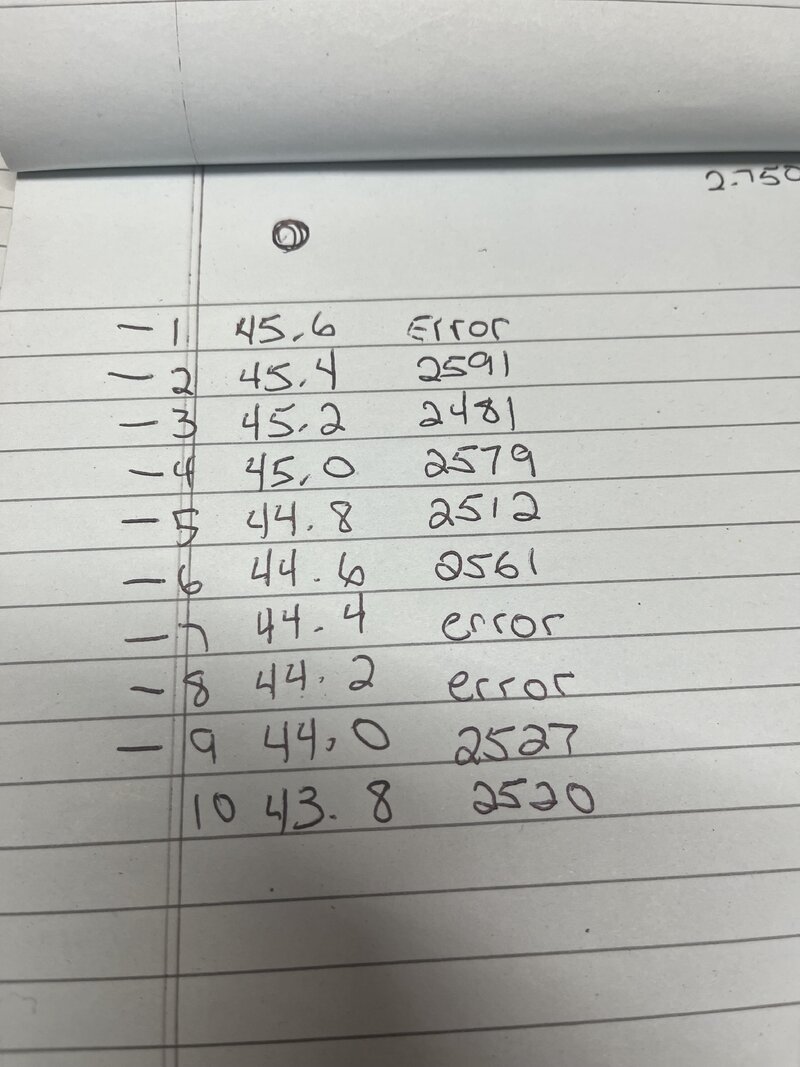 2.750
— 1 45.6 Error
— 2 45.4 2591
— 3 45.2 2481
— 4 45.0 2579
— 5 44.8 2512
— 6 44.6 2561
— 7 44.4 error
— 8 44.2 error
— 9 44.0 2527
10 43.8 2520